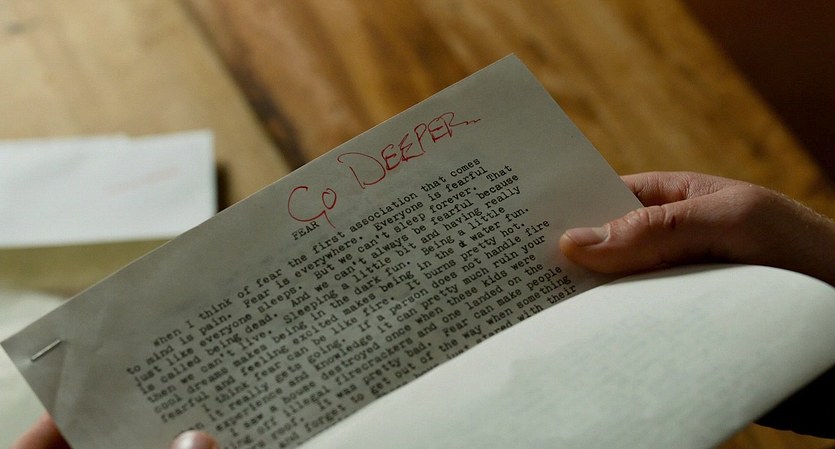 GO DEEPER
FEAR
When I think of fear the first association that comes
to mind is pain. Fear is everywhere. Everyone is fearful
just like everyone sleeps. But we can't sleep forever. That
is called being dead. And we can't always be fearful because
then we can't live. Sleeping a little bit and having really
cool dreams makes being in the dark fun. Being a little
fearful and feeling excited makes being in the water fun.
I think fear can be like fire. It burns pretty hot.
it really gets going. If a person does not handle fire
experience and knowledge it can pretty much ruin your
I saw a house destroyed once when these kids were
ing off illegal firecrackers and one landed on the
roof. It was pretty bad. Fear can make people
and forget to get out of the way when something
just stared with their